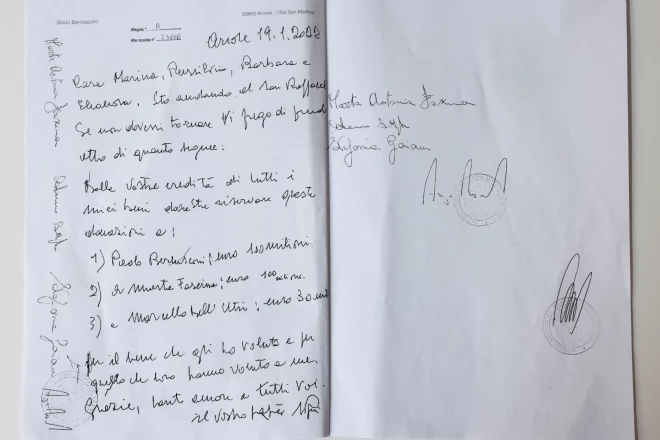 Silvio Berlusconi
20862 Arcore - Villa San Martino
Allegato "B"
Alla raccolta n°
Arcore 19.1.2022
Cara Marina, Piersilvio, Barbara e
Eleonora, Sto andando al San Raffaele
Se non dovessi tornare Vi prego di prend
atto di quanto segue:
Dalle vostre eredità di tutti i
miei beni dovreste riservare queste
donazioni a:
1) Paolo Berlusconi; euro 100 milioni.
2) a Marta Fascina; euro 100 milioni.
3) a Marcello Dell'Utri; euro 30 mil
per il bene che gli ho voluto e per
quello che loro hanno voluto a me.
Grazie, tant amore a tutti voi.
il vostro papà
Marta Antonia Fascina
Marta Antonia Fascina